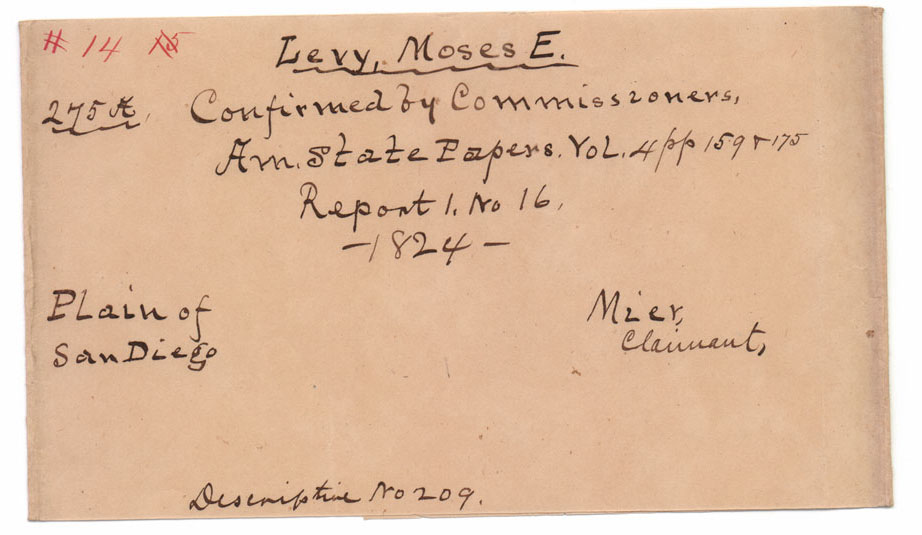 # 14 15
Levy, Moses E.
275 A. Confirmed by Commissioners,
Am. State Papers. Vol. 4 pp 159 & 175
Report 1. No 16.
- 1824 -
Plain of
San Diego
Mier,
Claimant,
Descriptive No 209.